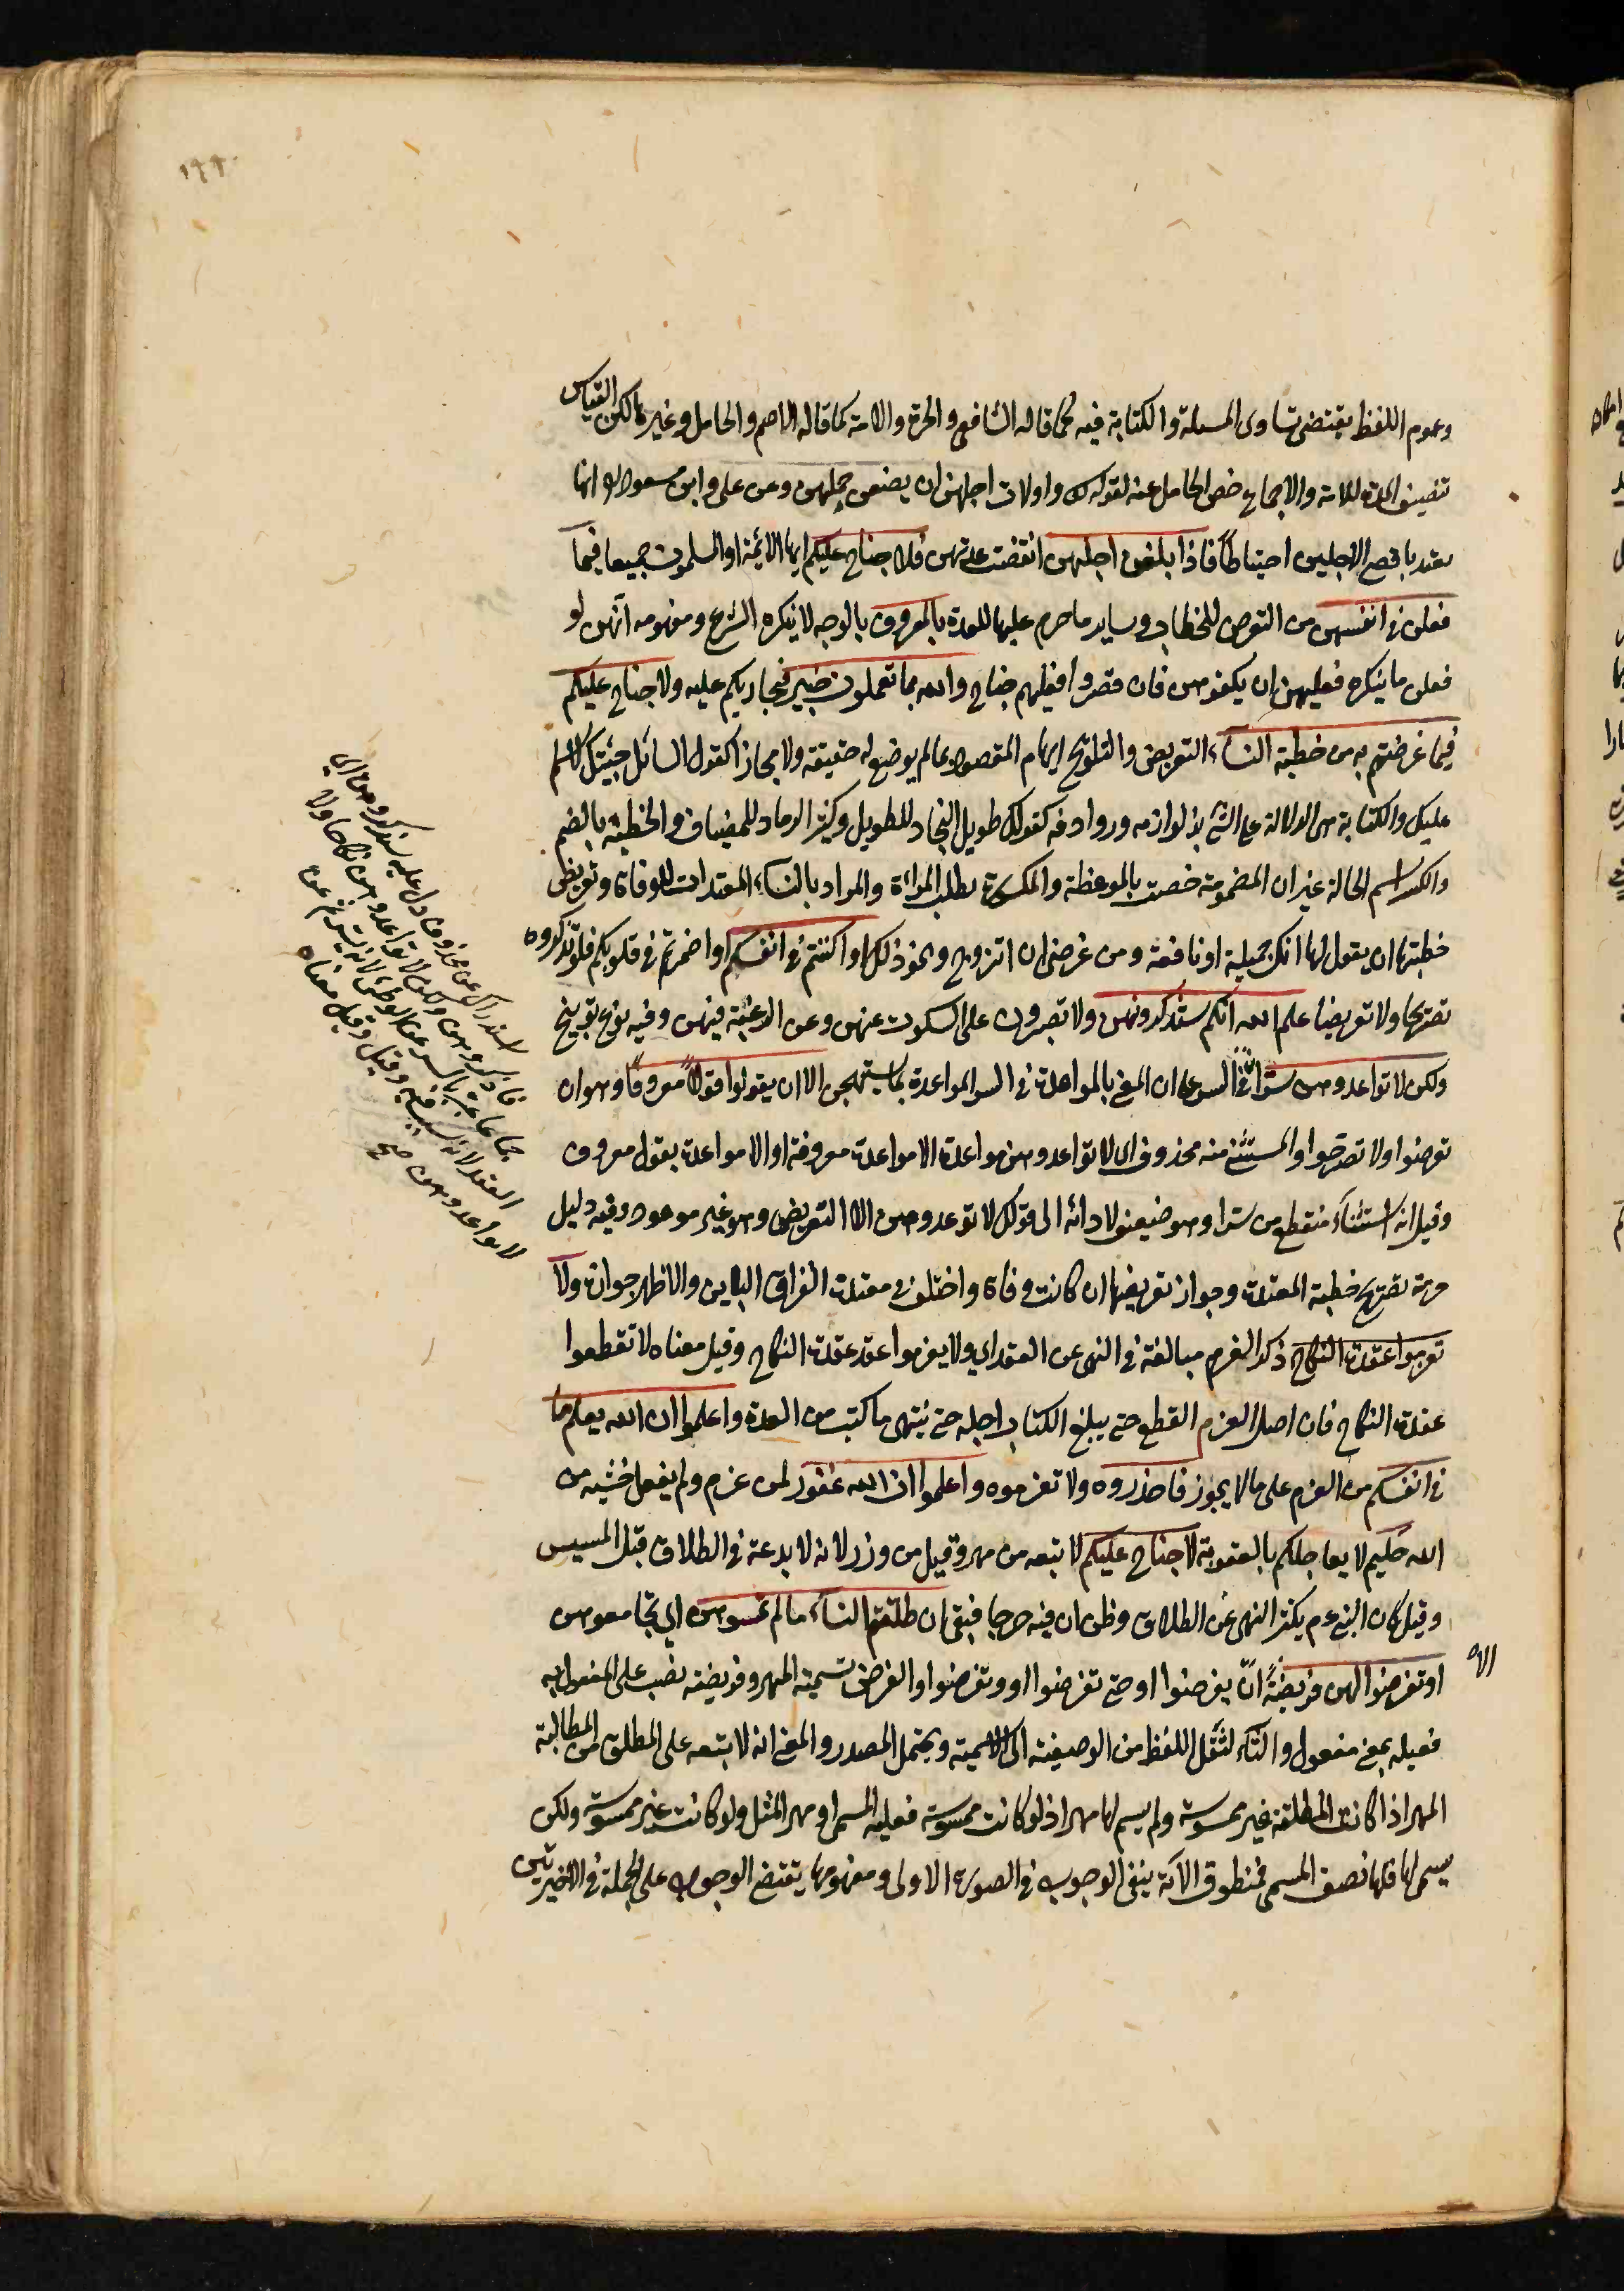 ١٩٩
وعموم اللفظ يقتضي تساوي المسلمة والكتابية فيه كما قاله الشافعي والحرة والامة كما قاله الاصم والحامل وغيرها لكن القياس
تنصيف المدة للامة والاجماع خص الحامل عنه لقوله تعالى واولات اجلهن ان يضعن حملهن وعن علي وابن مسعود انها
تعتد باقصى الاجلين احتياطا فاذا بلغن اجلهن انقضت عدتهن فلا جناح عليكم ايها الائمة او المسلمون جميعا فيما
فعلن في انفسهن من التعرض للخطاب وساير ما حرم عليها للعدة بالمعروف بالوجه لا ينكره الشرع ومفهومه انهن لو
فعلن ما ينكره فعليهم ان يكفوهن فان قصروا فعليهم جناح والله بما تعملون خبير فيجازيكم عليه ولا جناح عليكم
فيما عرضتم به من خطبة النساء التعريض والتلويح ايهام المقصود بما لم يوضع له حقيقة ولا مجازا كقول السائل جئتك لاسلم
عليك والكناية هى الدلالة على الشئ بذكر لوازمه وروادفه كقولك طويل النجاد للطويل وكثير الرماد للمضياف والخطبة بالضم
والكسر اسم الحالة غير ان المضمومة خصت بالموعظة والمكسورة بطلب المرأة والمراد بالنساء المعتدات للوفاة وتعريض
خطبتها ان يقول لها انك جميلة او نافعة ومن غرضي ان اتزوج ونحو ذلك او اكننتم في انفسكم او اضمرتم في قلوبكم فلم تذكروه
تصريحا ولا تعريضا علم الله انكم ستذكرونهن ولا تصبرون على السكوت عنهن وعن الرغبة فيهن وفيه نوع توبيخ
ولكن لا تواعدوهن سرا في السر على ان المعنى بالمواعدة في السر المواعدة بما يستهجن الا ان تقولوا قولا معروفا وهو ان
تعرضوا ولا تصرحوا والمستثنى منه محذوف اى لا تواعدوهن مواعدة الا مواعدة معروفة او الا مواعدة بقول معروف
وقيل انه استثناء منقطع من سرا وهو ضعيف لادائه الى قولك لا توعدوهن الا التعريض وهو غير موعود وفيه دليل
حرمة تصريح خطبة المعتدة وجواز تعريضها ان كانت وفاة واختلف في معتدة الفراق البائن والاظهر جوازه ولا
تعزموا عقدة النكاح ذكر العزم مبالغة في النهى عن العقد اي ولا تعزموا عقد عقدة النكاح وقيل معناه لا تقطعوا
عقدة النكاح فان اصل العزم القطع حتى يبلغ الكتاب اجله حتى ينتهى ما كتب من العدة واعلموا ان الله يعلم ما
في انفسكم من العزم على ما لا يجوز فاحذروه ولا تعزموه واعلموا ان الله غفور لمن عزم ولم يفعل خشية من
الله حليم لا يعاجلكم بالعقوبة لا جناح عليكم لا تبعه من مهر وقيل من وزر لانه لا بدعة في الطلاق قبل المسيس
وقيل كان النبي عم يكثر النهى عن الطلاق وظن ان فيه حرجا فنفى ان طلقتم النساء ما لم تمسوهن اي تجامعوهن
او تفرضوا لهن فريضة الا ان يفرضوا او حتى تفرضوا او وتفرضوا والفرض تسمية المهر وفريضة نصب على المفعول به
فعيله بمعنى مفعول والتاء لنقل اللفظ من الوصفية الى الاسمية ويحتمل المصدر والمعنى انه لا تبعه على المطلق من المطالبة
المهر اذا كانت المطلقة غير ممسوسة ولم يسم لها مهرا اذ لو كانت ممسوسة فعليه المسمى او مهر المثل ولو كانت غير ممسوسة ولكن
سمى لها فلها نصف المسمى فمنطوق الآية ينفى الوجوب في الصورة الاولى ومفهومها يقتضى الوجوب على الجملة في الاخيرتين
استدراك عن محذوف دل عليه ستذكرونهن اي
فاذكروهن ولكن لا تواعدوهن نكاحا اولا
جماعا عبر بالسر عن الوطئ لانه يسر ثم عن
العقد لانه سبب فيه وقيل معناه
لا تواعدوهن صح
الاه